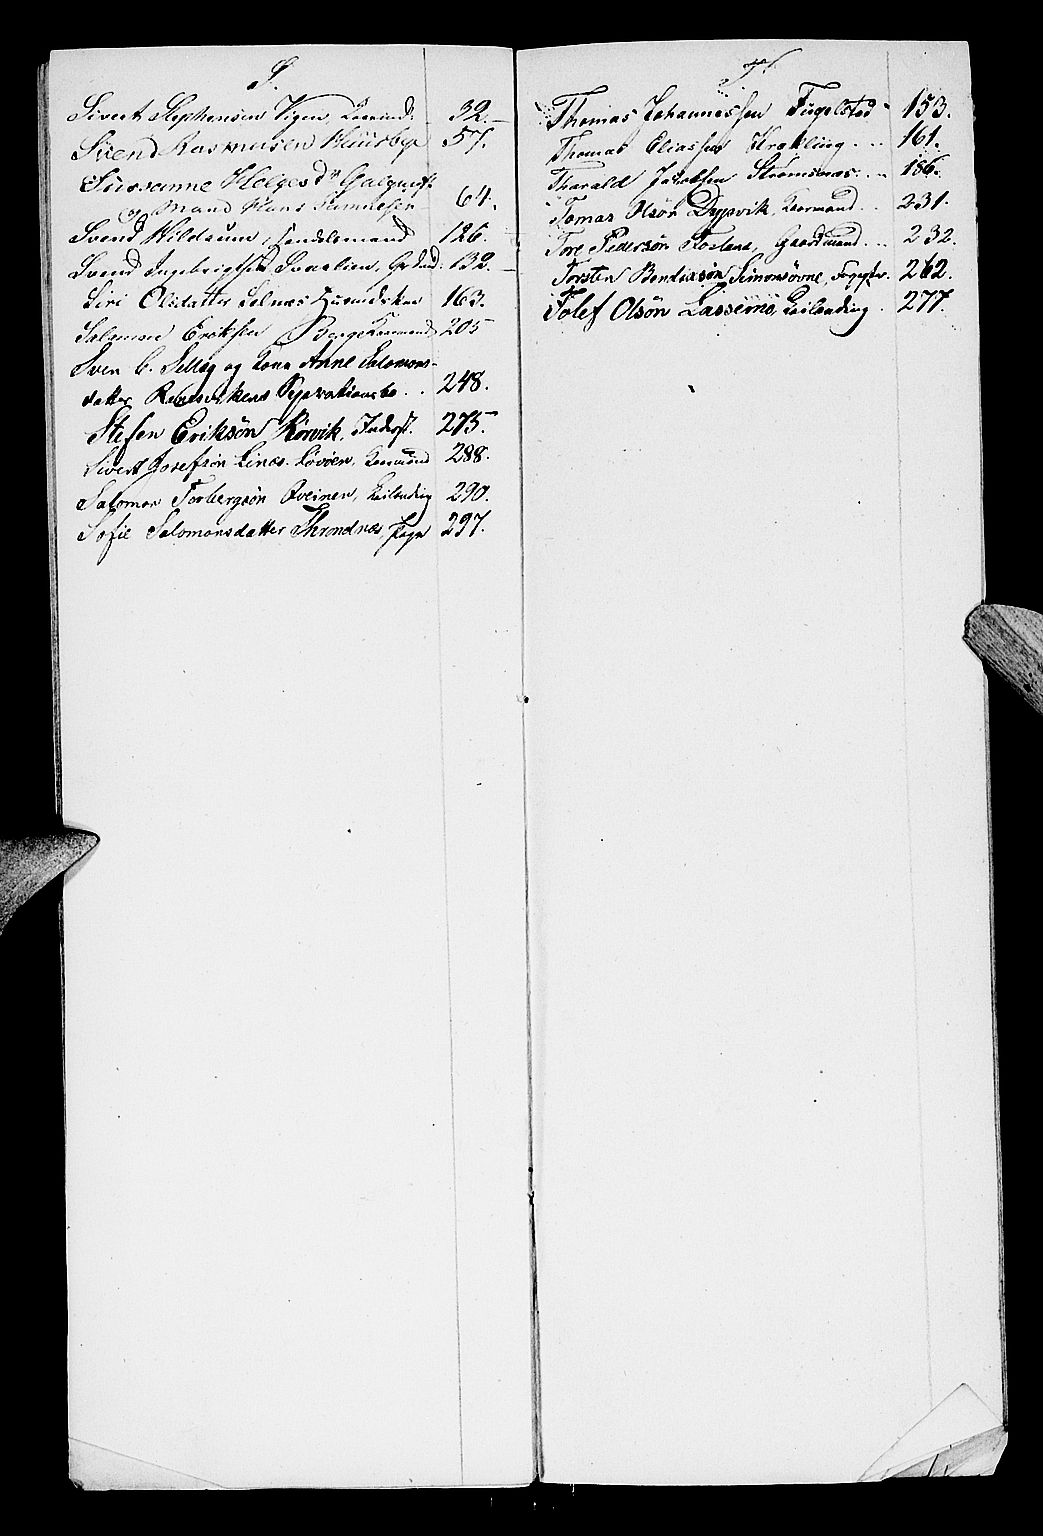 S.
Sivert Stephensen Vigen, Kaarmd. 32.
Svend Rasmusen Huusbye 57.
Sussanne Helgesd^r
og Mand Hans Samuelsen 64.
Svend Wildsum, Handelsmand 126.
Svend Ingebrigtsen Svaalien, Grdmd. 132.
Siri Olsdatter Selnæs Huusmdskne 163.
Salomon Eriksen Berge Kaarmand 205
Sven C. Selbog og Kona Anne Salomons-
datter Separationsbo . . 248.
Stefen Eriksön Rörvik, Inderst. 275.
Sivert Josefsön Linæs Lövöen, Kaarmand 288.
Salomon Torbergsön Qveinen, Leilending 290.
Sofie Salomonsdatter Throndnæs, Pige 297.
T.
Thomas Johannessen Fugelstad 153.
Thomas Eliassen Krokling . . . 161.
Tharald Jacobsen Strömsnæs . . . 186.
Tomas Olsön Dypvik, Kaarmand . . 231.
Tore Pedersön Gaardmand . . . 232.
Torsten Bendixsön Simonsövne, 262.
Tolef Olsön Lassemo, Leilending . 277.